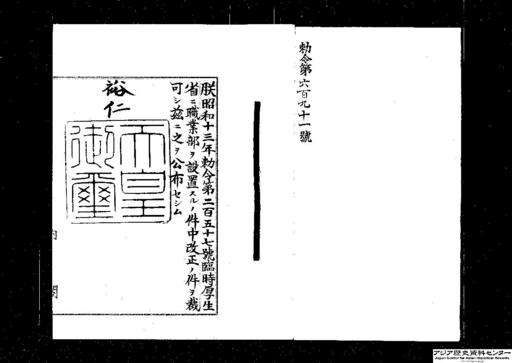 勅令第六百九十一號
朕昭和十三年勅令第二百五十七號臨時厚生
省ニ職業部ヲ設置スルノ件中改正ノ件ヲ裁
可シ茲ニ之ヲ公布セシム
裕仁
天皇御璽
内
閣
アジア歴史資料センター
Japan Center for Asian Historical Records